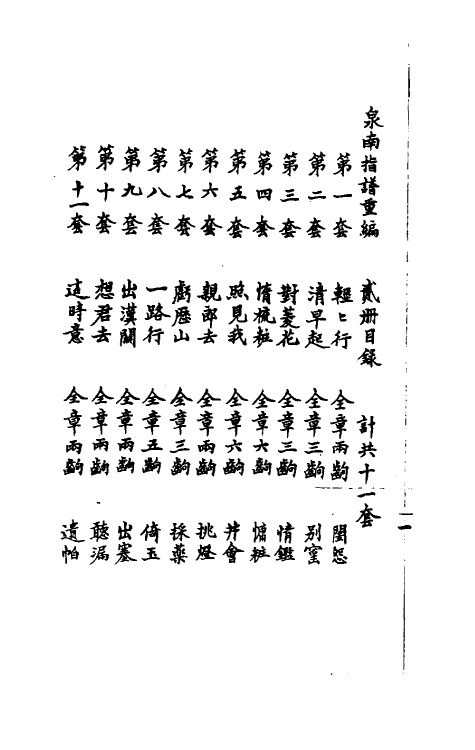 泉南指譜重編　貳册目錄　計共十一套
第一套　輕〻行　全章兩齣　閨怨
第二套　清早起　全章三齣　別窰
第三套　對菱花　全章三齣　情鑑
第四套　惰梳粧　全章六齣　慵粧
第五套　照見我　全章六齣　井會
第六套　親郎去　全章兩齣　挑燈
第七套　虧歷山　全章三齣　採藥
第八套　一路行　全章五齣　倚玉
第九套　出漢關　全章兩齣　出塞
第十套　想君去　全章兩齣　聽漏
第十一套　這時意　全章兩齣　遺帕
一